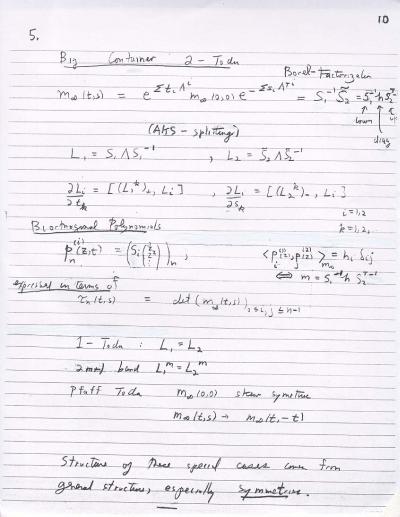 10
5.
Big Container 2-Toda
Borel-Factorization
m∞(t,s) = e^{Σ t_i Λ^i} m∞(0,0) e^{-Σ s_i Λ^{Ti}} = S₁⁻¹ S̃₂ = S₁⁻¹ h S₂^{T-1}
↑ ↑ ↑
low up
diag
(AKS-splitting)
L₁ = S₁ Λ S₁⁻¹ , L₂ = S̃₂ Λ S̃₂⁻¹
∂L_i/∂t_k = [(L₁^k)₊, L_i] , ∂L_i/∂s_k = [(L₂^k)₋, L_i]
i=1,2
k=1,2,
Biorthogonal Polynomials
p_n^{(i)}(z,t) = (S_i (1 z z² ⋮))_n , <p_i^{(1)}(z), p_j^{(2)}(z)>_{m∞} = h_i δ_ij
⇔ m = S₁⁻¹ h S₂^{T-1}
expressed in terms of
τ_n(t,s) = det(m∞(t,s))_{1≤i,j≤n-1}
1-Toda : L₁ = L₂
2m+1 band L₁^m = L₂^m
Pfaff Toda m∞(0,0) skew symetric
m∞(t,s) → m∞(t,-t)
Structure of these special cases come from
general structure, especially symmetries.